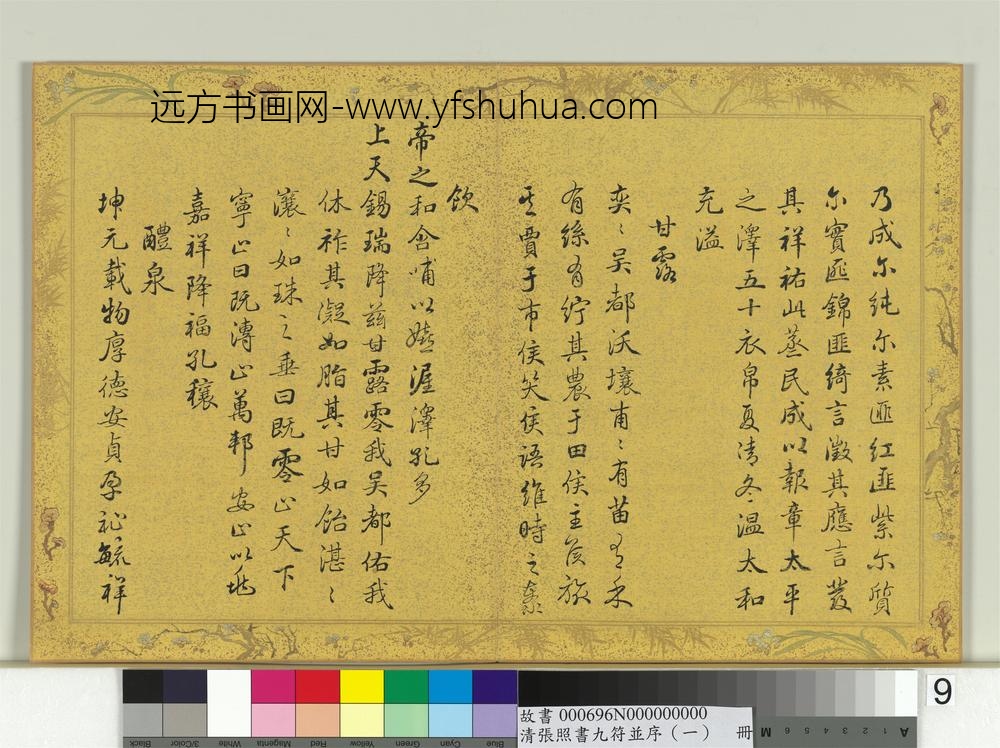 远方书画网-www.yfshuhua.com
乃成尔純尔素匪紅匪紫尔質
尔實匪錦匪綺言徵其應言發
其祥祐此蒸民成以報章太平
之澤五十衣帛夏清冬温太和
充溢
甘露
奕〻吴都沃壤甫〻有苗有禾
有絲有紵其農于田侯主侯旅
其賈于市侯笑侯語維時之
飲
帝之和含哺以嬉渥澤孔多
上天錫瑞降兹甘露零我吴都佑我
休祚其凝如脂其甘如飴湛〻
瀼〻如珠之垂曰既零止天下
寧止曰既漙止萬邦安止以
嘉祥降福孔穰
醴泉
坤元載物厚德安貞孕祉毓祥
9
故書 000696N000000000
清張照書九符並序（一） 冊
Black
3/Color
White
Magenta
Red
Yellow
Green
Cyan
Blue
A 1 2 3 4 5 6 M